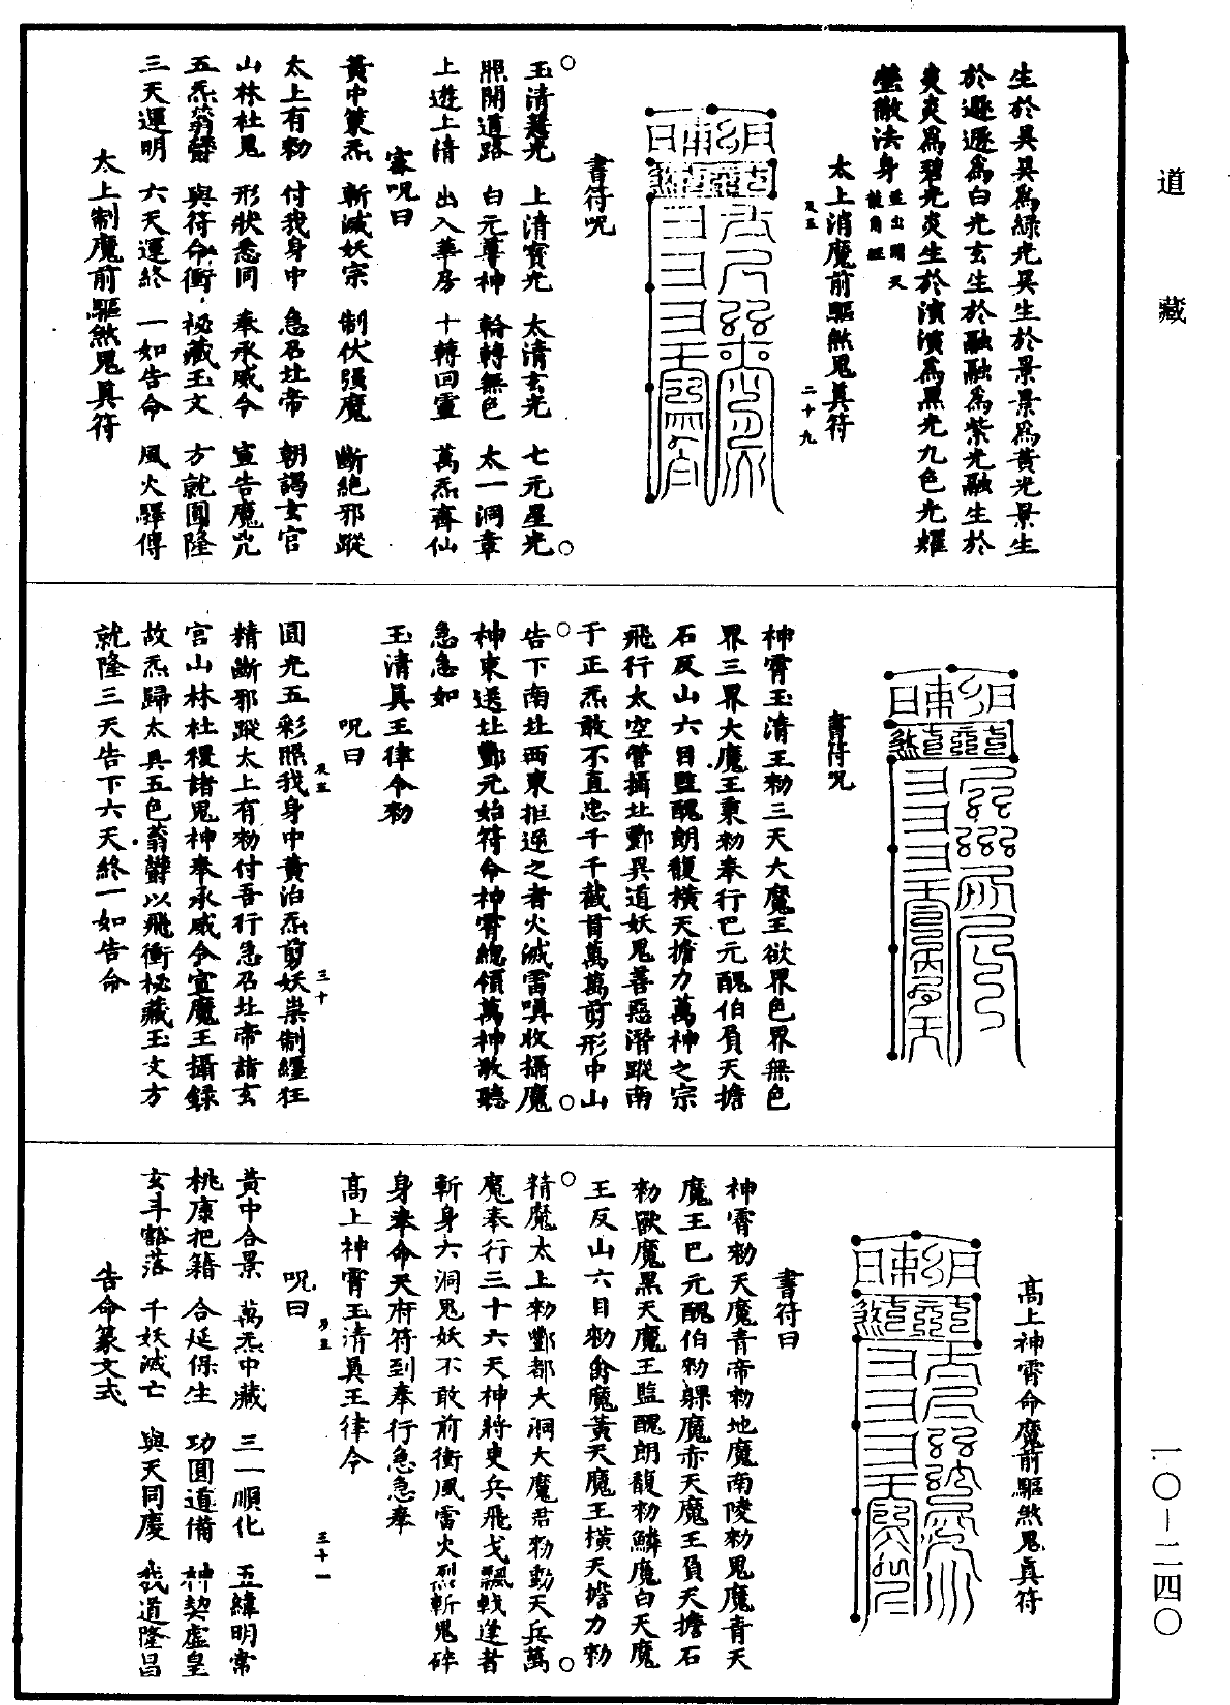 道藏
生於昊昊為綠光昊生於景景為黃光景生
於遯遯為白光玄生於融融為紫光融生於
炎炎為碧光炎生於濱濱為黑光九色光耀
瑩徹法身
太上消魔前驅煞鬼真符
二十九
書符呪
玉清慧光 上清寶光 太清玄光 七元星光
照開道路 白元尊神 輪轉無色 太一洞章
上遊上清 出入華房 十轉回靈 萬炁齊仙
密呪曰
黃中策炁 斬滅妖宗 制伏強魔 斷絕邪蹤
太上有勑 付我身中 急召北帝 朝謁玄官
山林社鬼 形狀悉同 奉承威令 宣告魔兇
五炁蓊鬱 與符命衝 祕藏玉文 方就圓隆
三天運明 六天運終 一如告命 風火驛傳
太上制魔前驅煞鬼真符
書符呪
神霄玉清王勑三天大魔王欲界色界無色
界三界大魔王秉勑奉行巴元醜伯負天擔
石反山六目監醜朗馥橫天擔力萬神之宗
飛行太空管攝北酆異道妖鬼善惡潛蹤南
于正炁敢不直忠千千截首萬萬剪形中山
告下南北西東拒逆之者火滅雷嗔收攝魔
神束送北酆元始符命神霄總領萬神敬聽
急急如
玉清真王律令勑
呪曰
圓光五彩照我身中黃治炁剪妖祟制繮狂
三十
精斷邪蹤太上有勑付吾行急召北帝諸玄
官山林社稷諸鬼神奉承威令宣魔王攝錄
故炁歸太真五色蓊鬱以飛衝祕藏玉文方
就隆三天告下六天終一如告命
高上神霄命魔前驅煞鬼真符
書符曰
神霄勑天魔青帝勑地魔南陵勑鬼魔青天
魔王巴元醜伯勑躶魔赤天魔王負天擔石
勑獸魔黑天魔王監醜朗馥勑鱗魔白天魔
王反山六目勑禽魔黃天魔王橫天擔力勑
精魔太上勑酆都大洞大魔君勑動天兵萬
魔奉行三十六天神將吏兵飛戈飄戟逢者
斬身六洞鬼妖不敢前衝風雷火烈斬鬼碎
身奉命天府符到奉行急急奉
高上神霄玉清真王律令
呪曰
三十一
黃中合景 萬炁中藏 三一順化 五緯明常
桃康把籍 合延保生 功圓道備 神契虛皇
玄斗豁落 千妖滅亡 與天同慶 我道隆昌
告命篆文式
一〇－二四〇